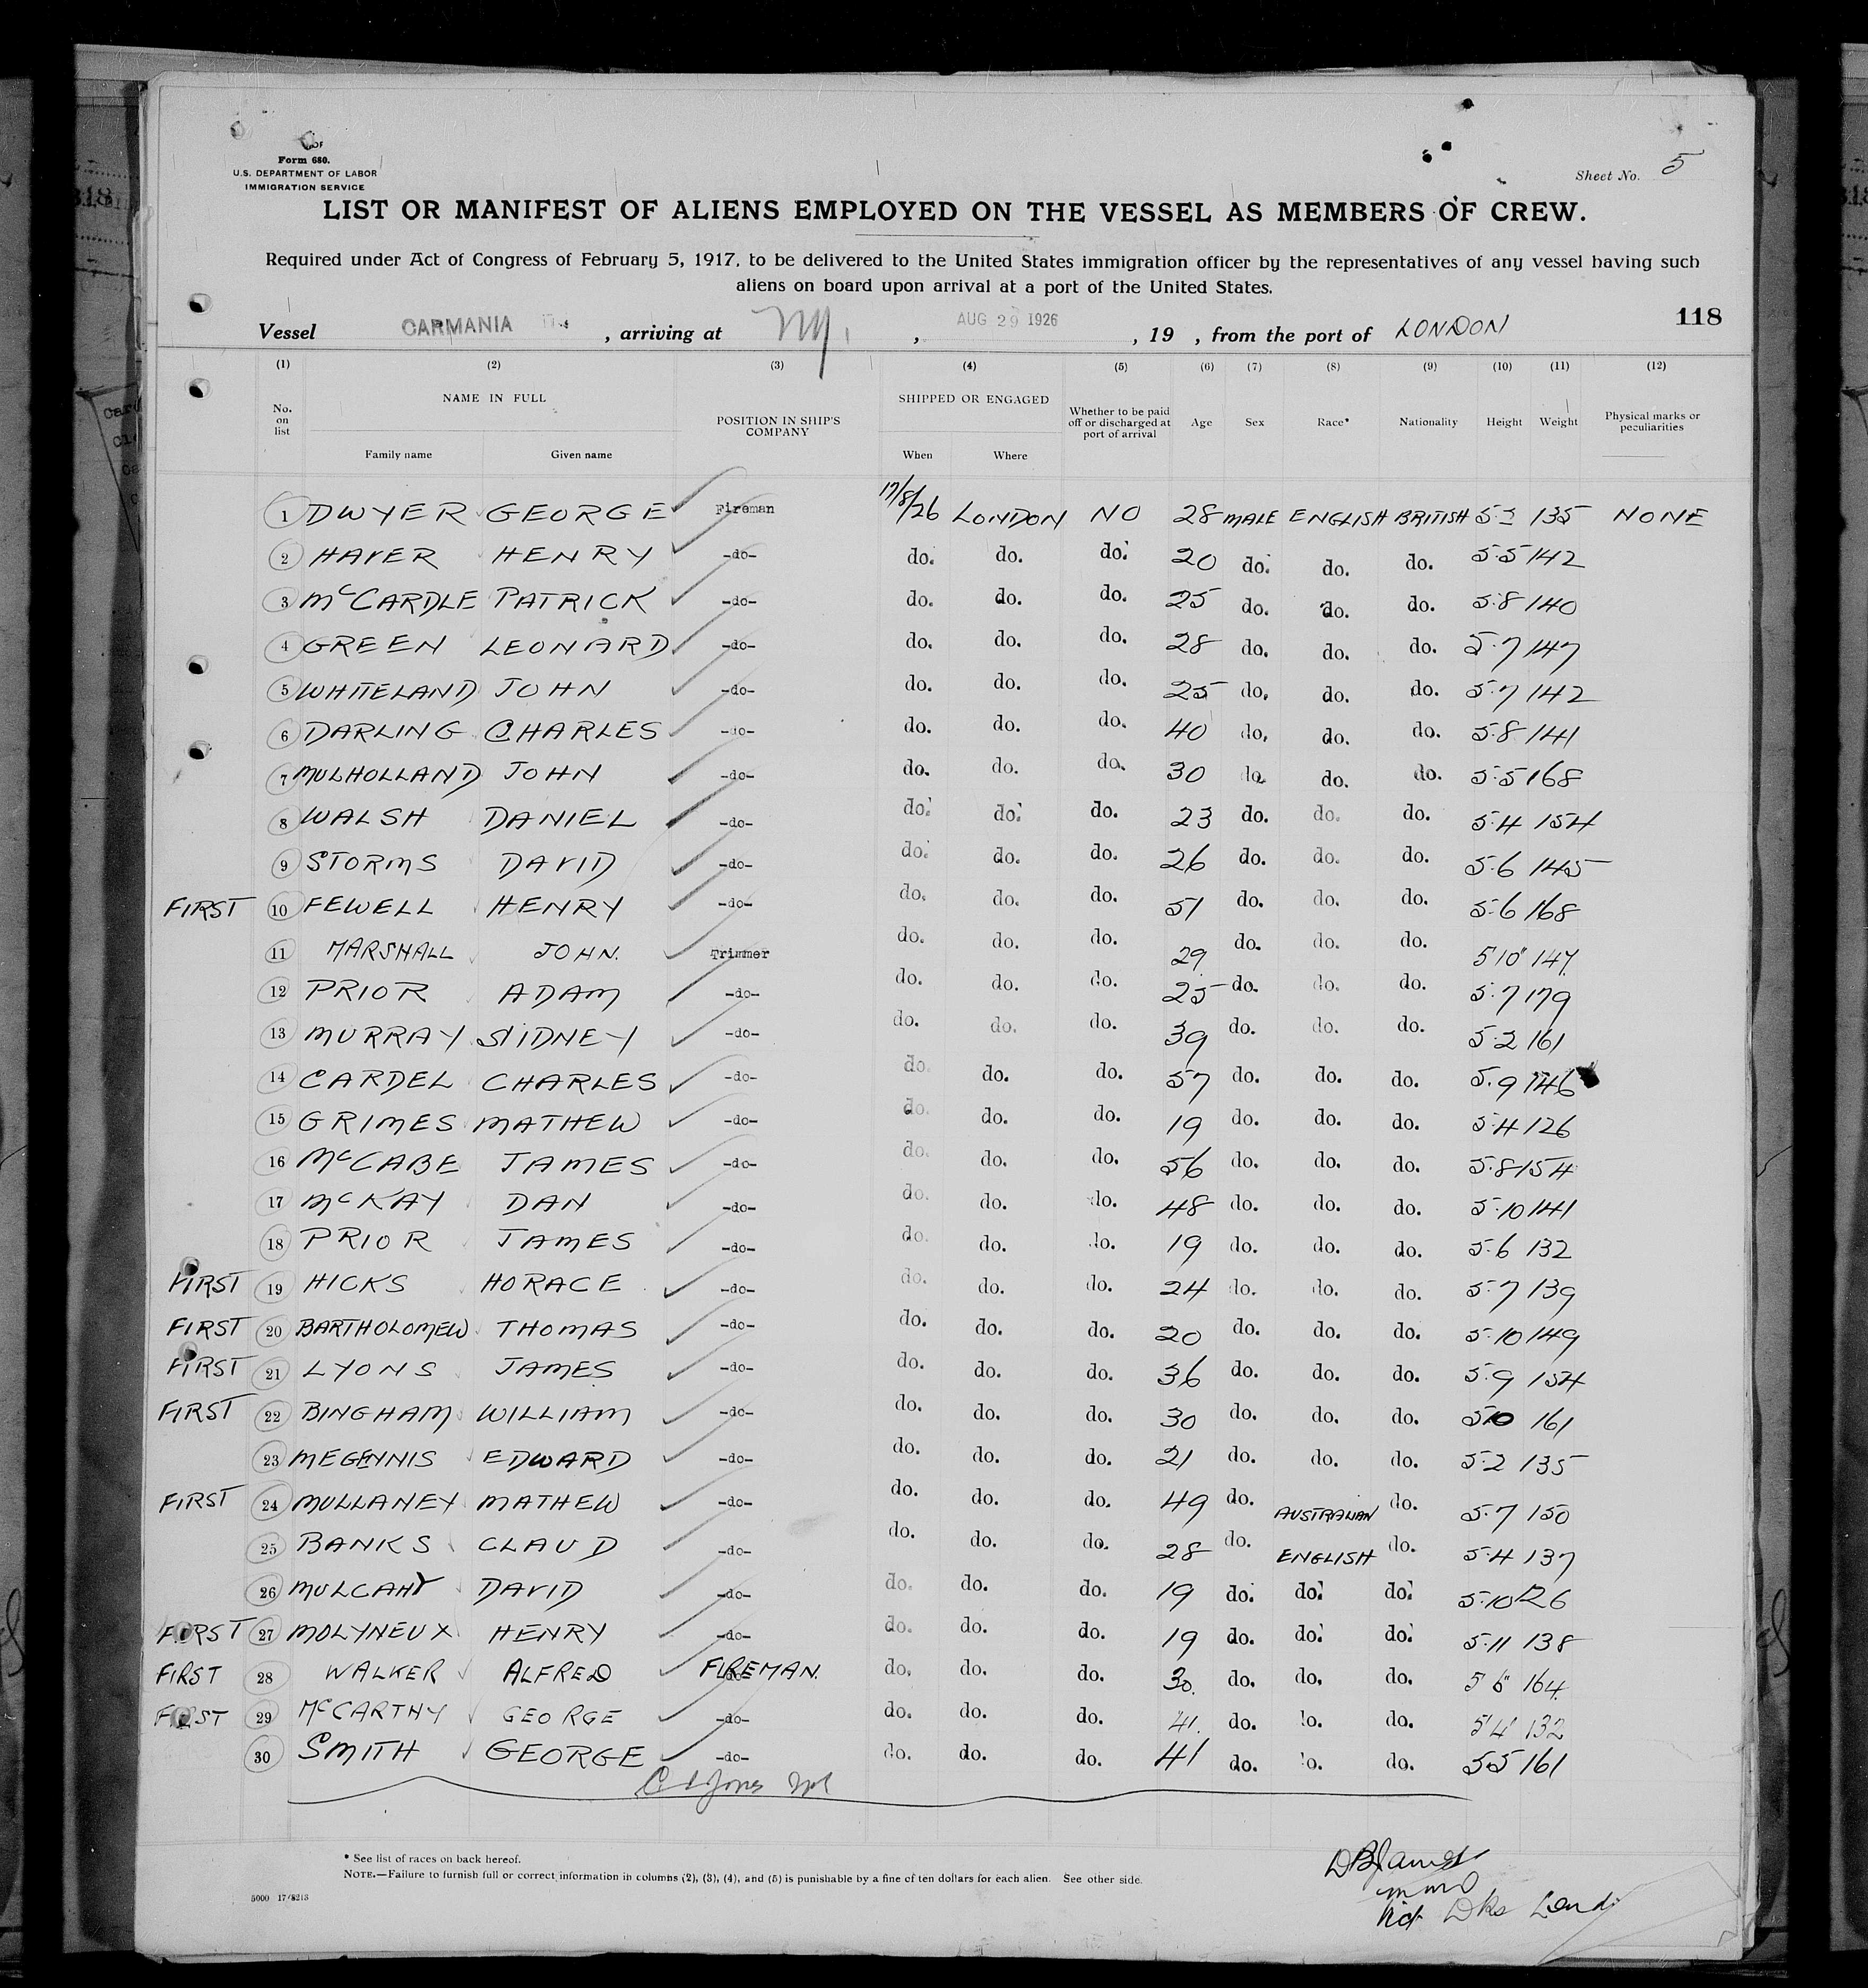 Form 680.
U.S. DEPARTMENT OF LABOR
IMMIGRATION SERVICE
Sheet No. 5
LIST OR MANIFEST OF ALIENS EMPLOYED ON THE VESSEL AS MEMBERS OF CREW.
Required under Act of Congress of February 5, 1917, to be delivered to the United States immigration officer by the representatives of any vessel having such
aliens on board upon arrival at a port of the United States.
118
Vessel CARMANIA , arriving at NY. , AUG 29 1926 , 19 , from the port of LONDON
(1) (2) (3) (4) (5) (6) (7) (8) (9) (10) (11) (12)
No. on list NAME IN FULL Family name Given name POSITION IN SHIP'S COMPANY SHIPPED OR ENGAGED When Where Whether to be paid off or discharged at port of arrival Age Sex Race* Nationality Height Weight Physical marks or peculiarities
1 DWYER GEORGE Fireman 17/8/26 LONDON NO 28 MALE ENGLISH BRITISH 5:3 135 NONE
2 HAYER HENRY -do- do. do. do. 20 do. do. do. 5:5 142
3 McCARDLE PATRICK -do- do. do. do. 25 do. do. do. 5:8 140
4 GREEN LEONARD -do- do. do. do. 28 do. do. do. 5:7 147
5 WHITELAND JOHN -do- do. do. do. 25 do. do. do. 5:7 142
6 DARLING CHARLES -do- do. do. do. 40 do. do. do. 5:8 141
7 MULHOLLAND JOHN -do- do. do. do. 30 do. do. do. 5:5 168
8 WALSH DANIEL -do- do. do. do. 23 do. do. do. 5:4 154
9 STORMS DAVID -do- do. do. do. 26 do. do. do. 5:6 145
FIRST 10 FEWELL HENRY -do- do. do. do. 51 do. do. do. 5:6 168
11 MARSHALL JOHN. Trimmer do. do. do. 29 do. do. do. 5'10" 147
12 PRIOR ADAM -do- do. do. do. 25 do. do. do. 5:7 179
13 MURRAY SIDNEY -do- do. do. do. 39 do. do. do. 5:2 161
14 CARDEL CHARLES -do- do. do. do. 57 do. do. do. 5:9 146
15 GRIMES MATHEW -do- do. do. do. 19 do. do. do. 5:4 126
16 McCABE JAMES -do- do. do. do. 56 do. do. do. 5:8 154
17 McKAY DAN -do- do. do. do. 48 do. do. do. 5:10 141
18 PRIOR JAMES -do- do. do. do. 19 do. do. do. 5:6 132
FIRST 19 HICKS HORACE -do- do. do. do. 24 do. do. do. 5:7 139
FIRST 20 BARTHOLOMEW THOMAS -do- do. do. do. 20 do. do. do. 5:10 149
FIRST 21 LYONS JAMES -do- do. do. do. 36 do. do. do. 5:9 154
FIRST 22 BINGHAM WILLIAM -do- do. do. do. 30 do. do. do. 5:10 161
23 MEGENNIS EDWARD -do- do. do. do. 21 do. do. do. 5:2 135
FIRST 24 MULLANEY MATHEW -do- do. do. do. 49 do. AUSTRALIAN do. 5:7 150
25 BANKS CLAUD -do- do. do. do. 28 do. ENGLISH do. 5:4 137
26 MULCAHY DAVID -do- do. do. do. 19 do. do. do. 5:10 126
FIRST 27 MOLYNEUX HENRY -do- do. do. do. 19 do. do. do. 5:11 138
FIRST 28 WALKER ALFRED FIREMAN. do. do. do. 30. do. do. do. 5'6" 164
FIRST 29 McCARTHY GEORGE -do- do. do. do. 41. do. do. do. 5'4" 132
30 SMITH GEORGE -do- do. do. do. 41 do. do. do. 5:5 161
* See list of races on back hereof.
NOTE.—Failure to furnish full or correct information in columns (2), (3), (4), and (5) is punishable by a fine of ten dollars for each alien. See other side.
5000 17/8213